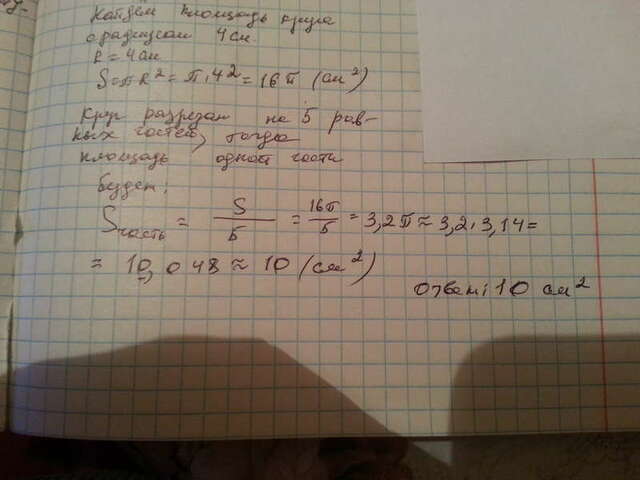 Найдем площадь круга
с радиусом 4 см.
R = 4 см
S = πR² = π · 4² = 16π (см²)
Круг разрезан на 5 рав-
ных частей, тогда
площадь одной части
будет:
Sчасть = S/5 = 16π/5 = 3,2π ≈ 3,2 · 3,14 =
= 10,048 ≈ 10 (см²)
Ответ: 10 см²